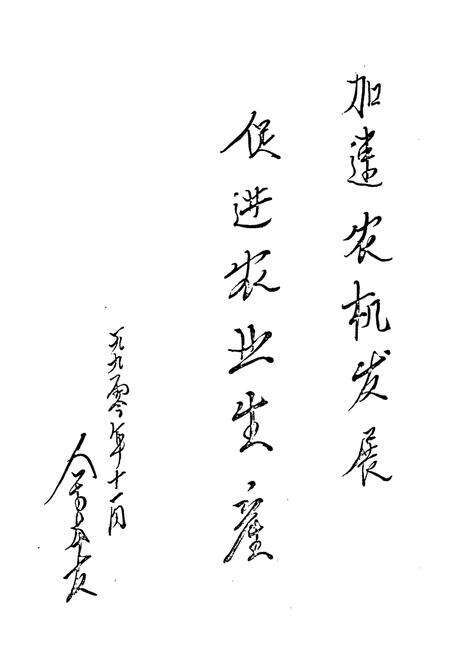 加速农机发展
促进农业生産
一九九零年十一月